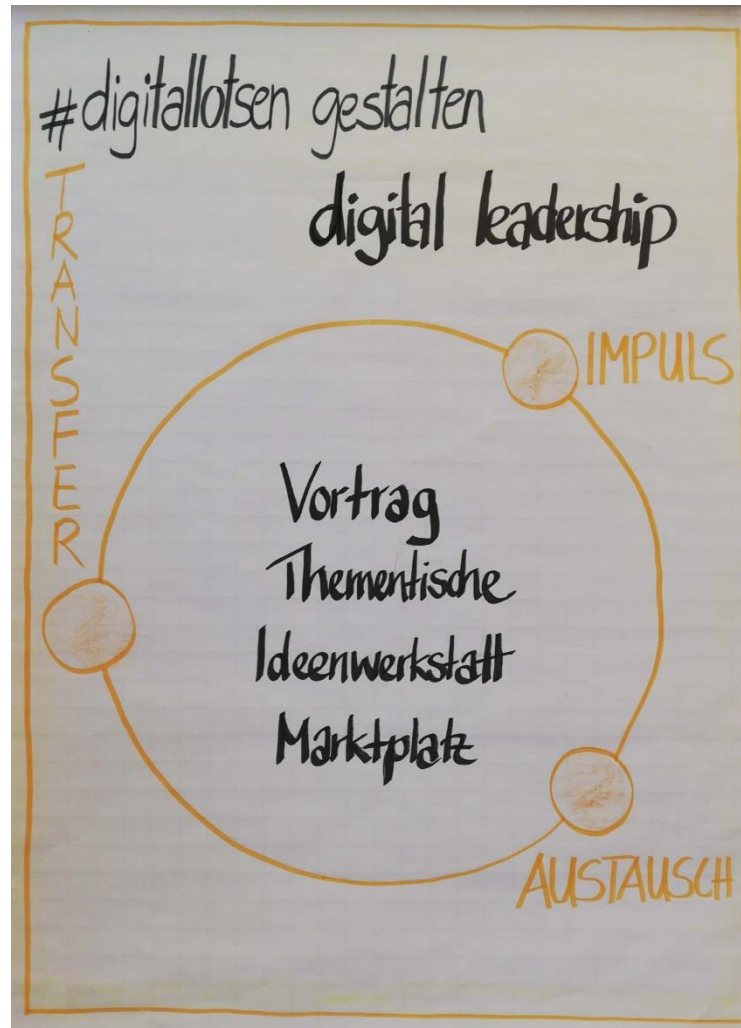 #digitallotsen gestalten
digital leadership
TRANSFER
IMPULS
Vortrag
Thementische
Ideenwerkstatt
Marktplatz
AUSTAUSCH